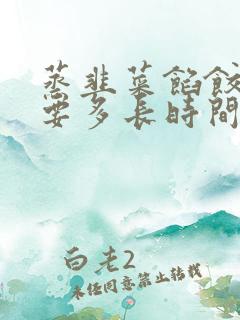 蒸韭菜餡餃
要多長時間
白老2
未經同意禁止轉載